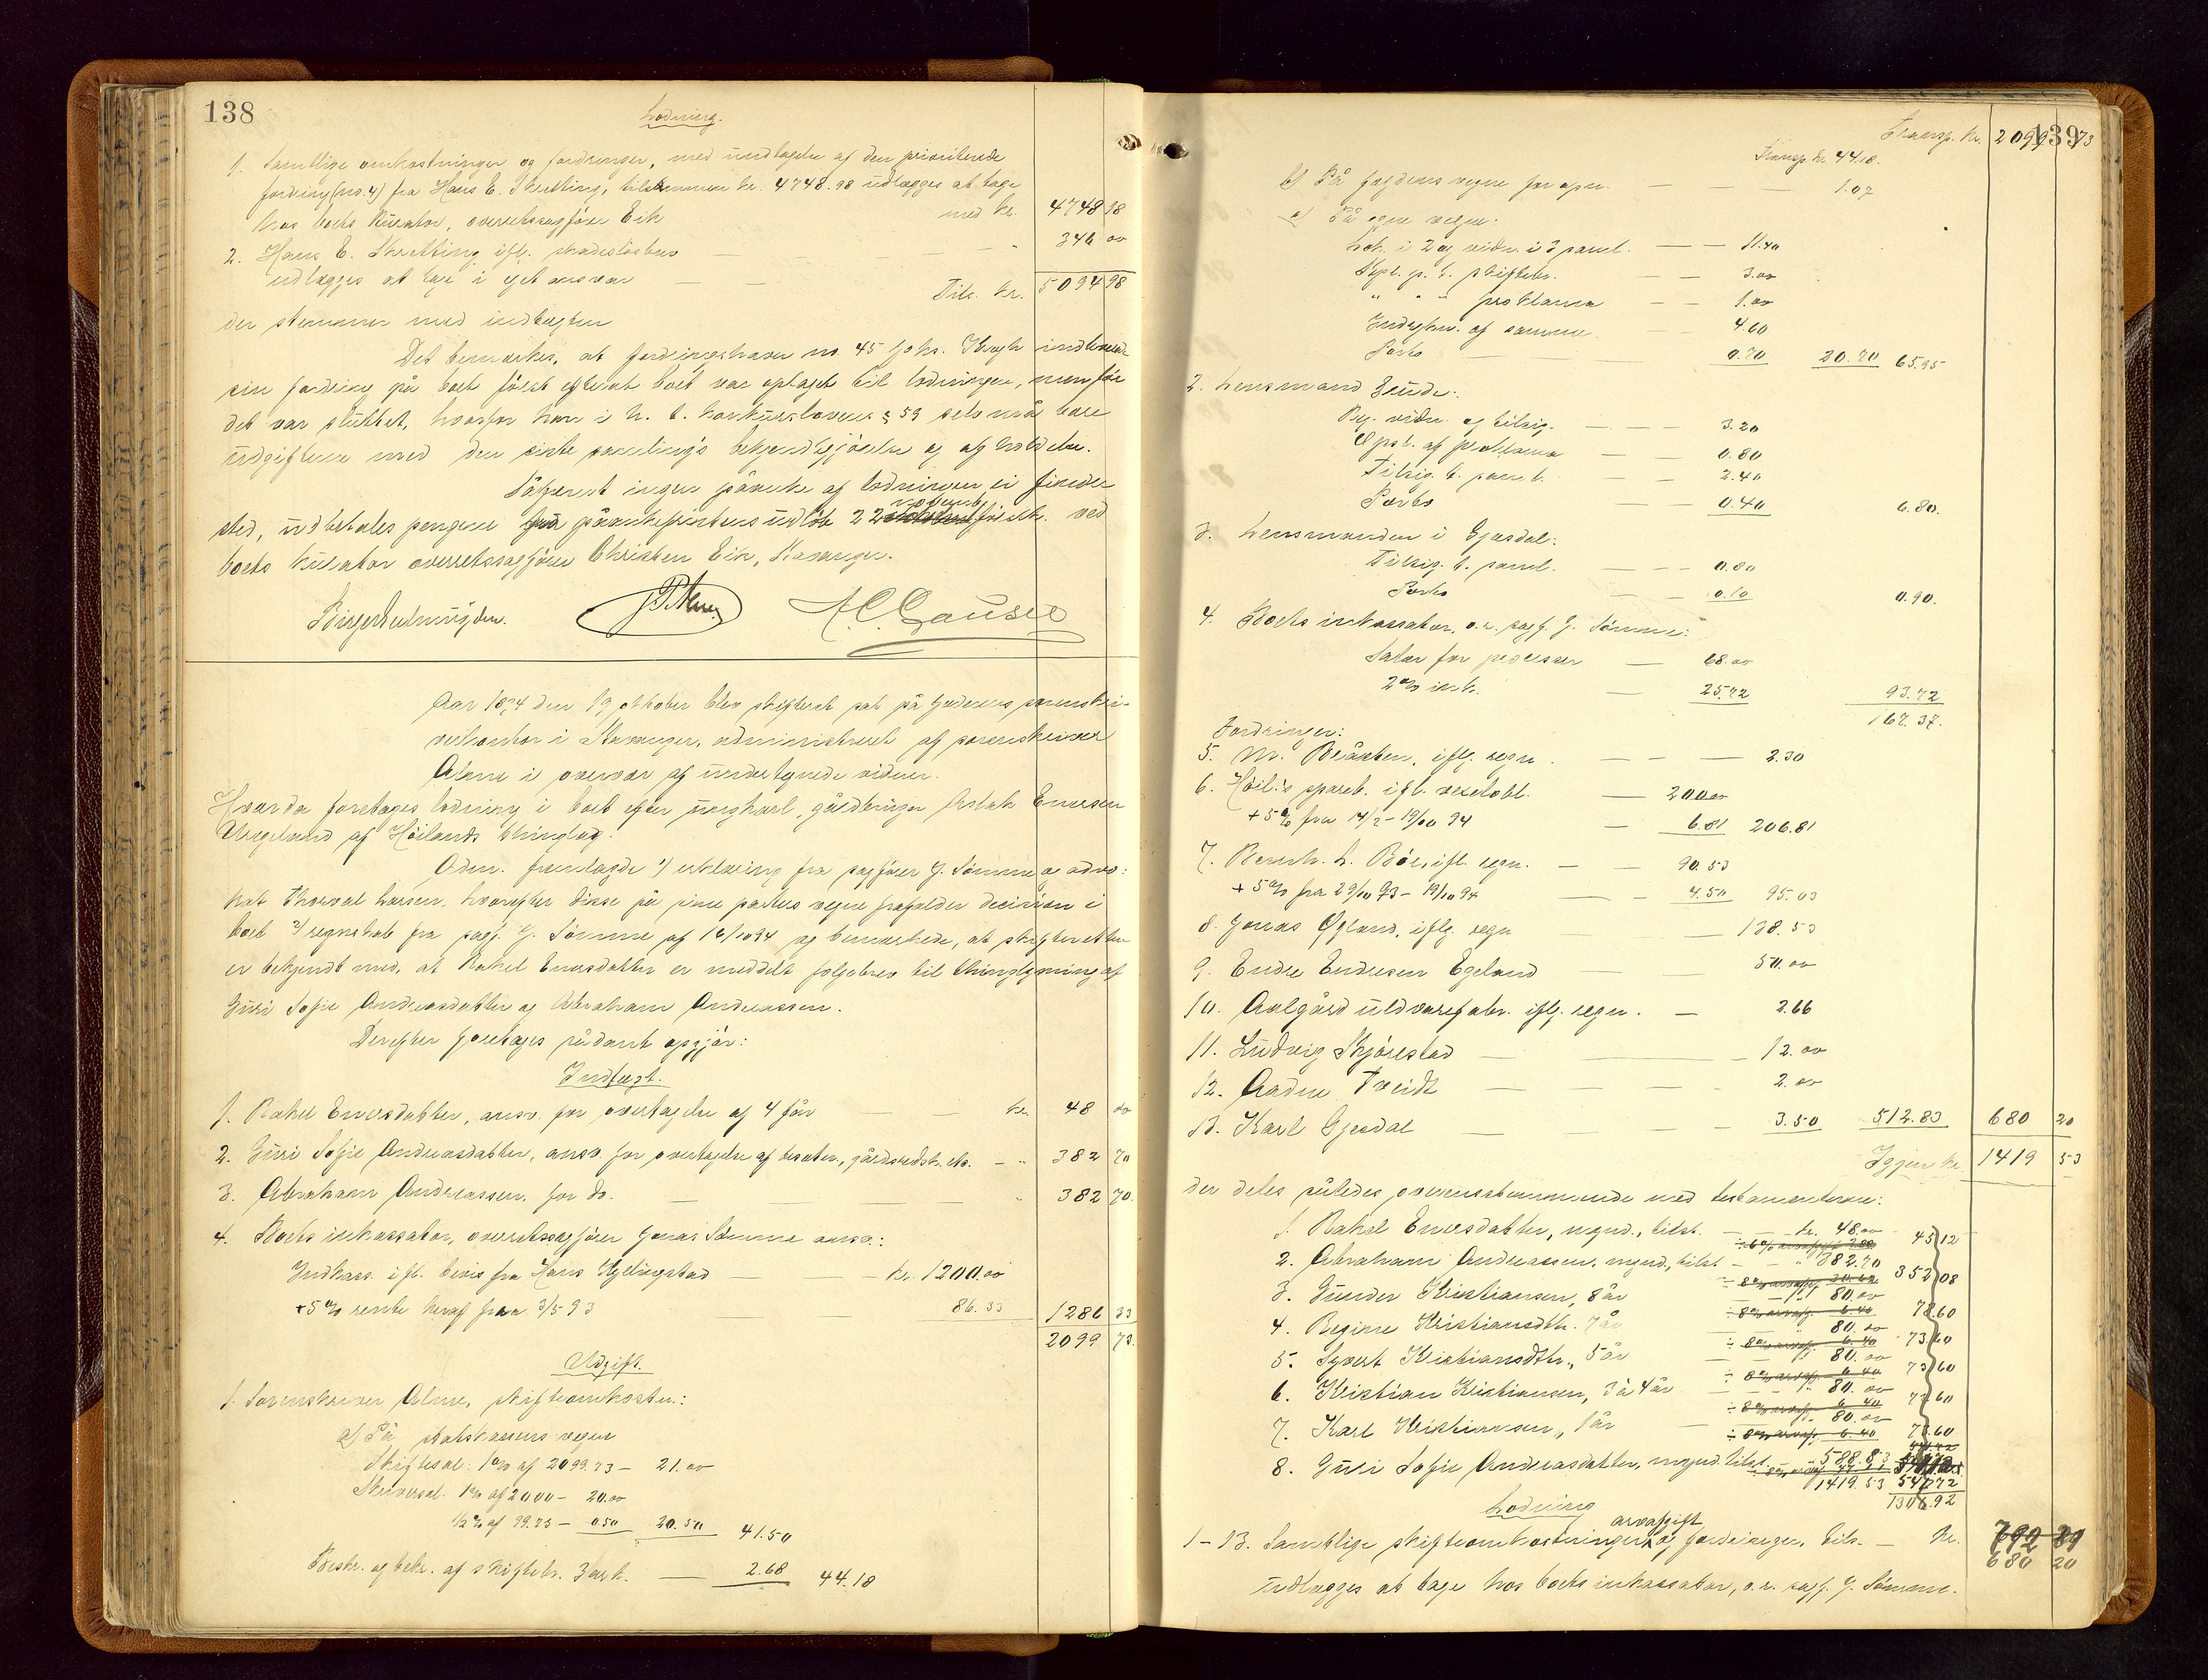 138
Lodning.
1. Samtlige omkostninger og fordringer, med undtagelse af den prioriterede
fordring (no. 4) fra Hans E. Skretting, tilsammen kr. 4748.98 udlægges at tage
hos boets kurator, overretssagfører Eik med kr. 4748 98
2. Hans E. Skretting ifl. skadesløsbrev
udlægges at tage i eget ansvar — — " 346 00
Tils. kr. 5094 98
der stemmer med indtægten
Det bemærkes, at fordringshaver no. 45 Johs. Krogh indleverede
sin fordring på boet først efterat boet var optaget til lodningen, men før
det var sluttet, hvorfor han i h. t. konkurslovens § 59 selv må bære
udgifterne med den sidste samlings bekjendtgjørelse og afholdelse.
Såfremt ingen påanke af lodningen ei finder
november
sted, udbetales pengene påankefristens udløb 22 førstk. ved
boets kurator overretssagfører Christen Eik, Stavanger.
Aar 1894 den 19 oktober blev skifteret sat på Jæderens sorenskri-
verkontor i Stavanger, administreret af sorenskriver
Alme i overvær af undertegnede vidner.
Hvorda foretages lodning i boet efter ungkarl, gårdbruger Aslak Enersen
af Høilands thinglag.
Adm. fremlagde 1) erklæring fra sagfører J. Sømme og advo-
kat Thorval Larsen, hvorefter disse på sine parters vegne frafalder decision i
boet 2) regnskab fra sagf. J. Sømme af 16/10 94 og bemærkede, at skifteretten
er bekjendt med, at Rakel Enersdatter er meddelt følgebrev til thinglysning af
Guri Sofie Andreasdatter og Abraham Andreassen.
Derefter foretages sådant opgjør:
Indtægt.
1. Rakel Enersdatter, ansv. for overtagelse af 4 får — — kr. 48 00
2. Guri Sofie Andreasdatter, ansv. for overtagelse af besætn., gårdsredsk. etc. — " 382 70
3. Abraham Andreassen, for do. — — " 382 70.
4. Boets inkassator, overretssagfører Jonas Sømme ansv.:
Indkass. ifl. bevis fra Hans Kyllingstad — — kr. 1200.00
+ 5% rente heraf fra 3/5 93 — 86.33 1286 33
2099 73.
Udgift.
1. Sorenskriver Alme, skifteomkostn.:
a) På statskassens vegne
Skifteafg. 1% af 2099.73 — 21.00
Skriversal. 1% af 2000 — 20.00
1/2% af 99.73 — 0.50 20.50 41.50
Beskr. og bekr. af skiftebr. 3 ark. — 2.68 44.18
139
Transp. kr. 2099 73
Transp. kr. 44.18.
b) På fogdens vegne for opn. — — — 1.07
c) På egne vegne.
2 og vidn. i 3 saml. — — 11.40
p. t. skiftebr. — — 3.00
" " " proklama — — 1.00
af samme — 4.60
Porto — 0.70 20.70 65.95
2. Lensmand Grude:
Reg. vidn. og tilsig. — — — 3.20
Opsl. af proklama — — 0.80
Tilsig. t. saml. — — 2.40
Porto — — 0.40 6.80.
3. Lensmanden i Gjesdal:
Tilsig. t. saml. — — — 0.80
Porto — — 0.10 0.90.
4. Boets inkassator, o.r. sagf. J. Sømme:
Salær for processer — 68.00
2% ink. — 25.72 93.72
167.37.
Fordringer:
5. M. Bråsten, iflg. regn. — — — 2.30
6. Høil.'s spareb. ifl. vexelobl. — 200.00
+ 5% fra 14/2 – 19/10 94 — 6.81 206.81
7. Berent L. Bøe, ifl. regn. — — 90.53
+ 5% fra 29/10 93 – 19/10 94 — — 4.50 95.03
8. Jonas Øgland, iflg. regn — — 138.53
9. Endre Endresen Egeland — — 50.00
10. Aalgård uldvarefabr. iflg. regn. — 2.66
11. Ludvig Skjørestad — — — 12.00
12. Aadne Tveidt — — — 2.00
13. Karl Gjesdal — — — 3.50 512.83 680 20
Igjen kr. 1419 53
der deles således overensstemmende med testamenterne:
1. Rakel Enersdatter, mynd., tilst. — — kr. 48.00
÷ 6% arveafgift 2.88 45 12
2. Abraham Andreassen, mynd., tilst — — " 382.70
÷ 8% arveafg. 30.62 352 08
3. Gunder Kristiansen, 8 år — — " 80.00
÷ 8% arveafg. 6.40 73.60
4. Regine Kristiansdtr. 7 år — — " 80.00
÷ 8% arveafg. 6.40 73.60
5. Syvert Kristiansdtr., 5 år — — " 80.00
÷ 8% arveafg. 6.40 73 60
6. Kristian Kristiansen, 3 à 4 år — — " 80.00
÷ 8% arveafg. 6.40 73 60
7. Karl Kristiansen, 1 år — — " 80.00
÷ 8% arveafg. 6.40 73.60
8. Guri Sofie Andreasdatter, mynd. tilst. — 588.83
1419.53 541 72
1306.92
Lodning
arveafgift
1–13. Samtlige skifteomkostninger og fordringer, tils. — kr. 792 81
680 20
udlægges at tage hos boets inkassator, o.r. sagf. J. Sømme.